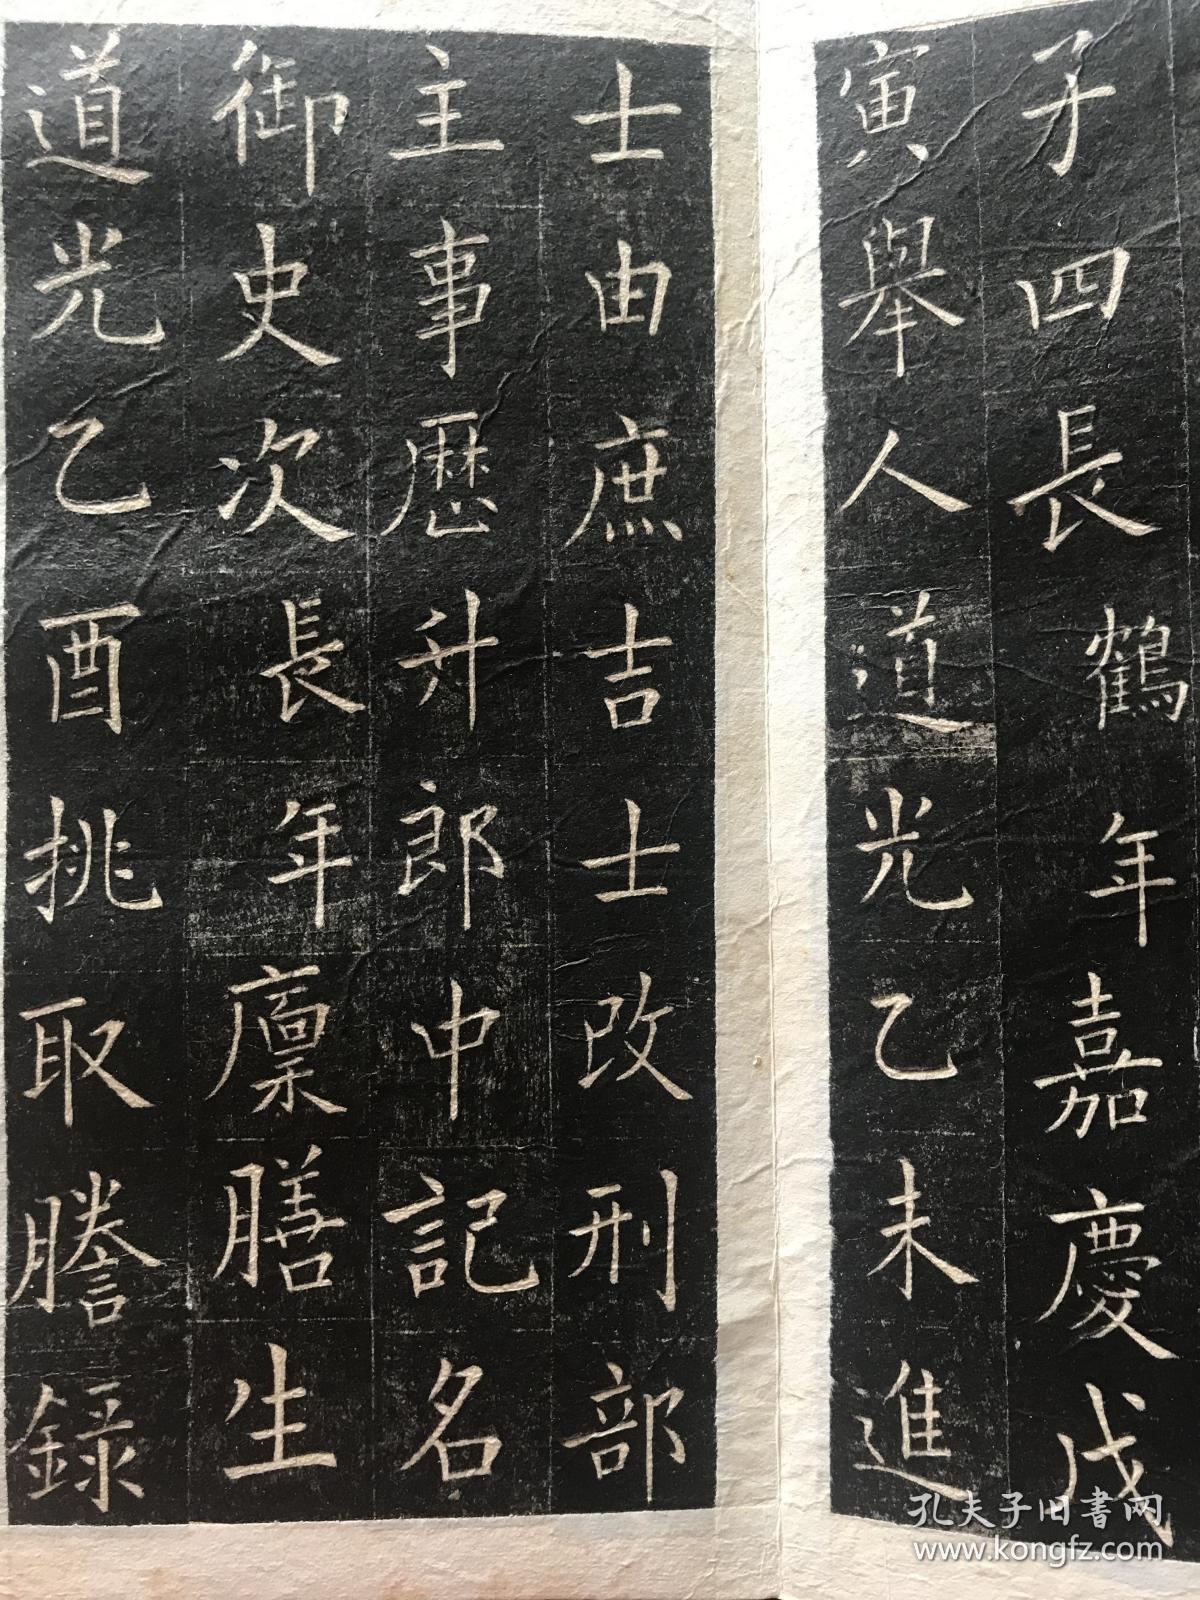 子四長鶴年嘉慶戊
寅舉人道光乙未進
士由庶吉士改刑部
主事歷升郎中記名
御史次長年廩膳生
道光乙酉挑取謄錄
孔夫子旧書网
www.kongfz.com